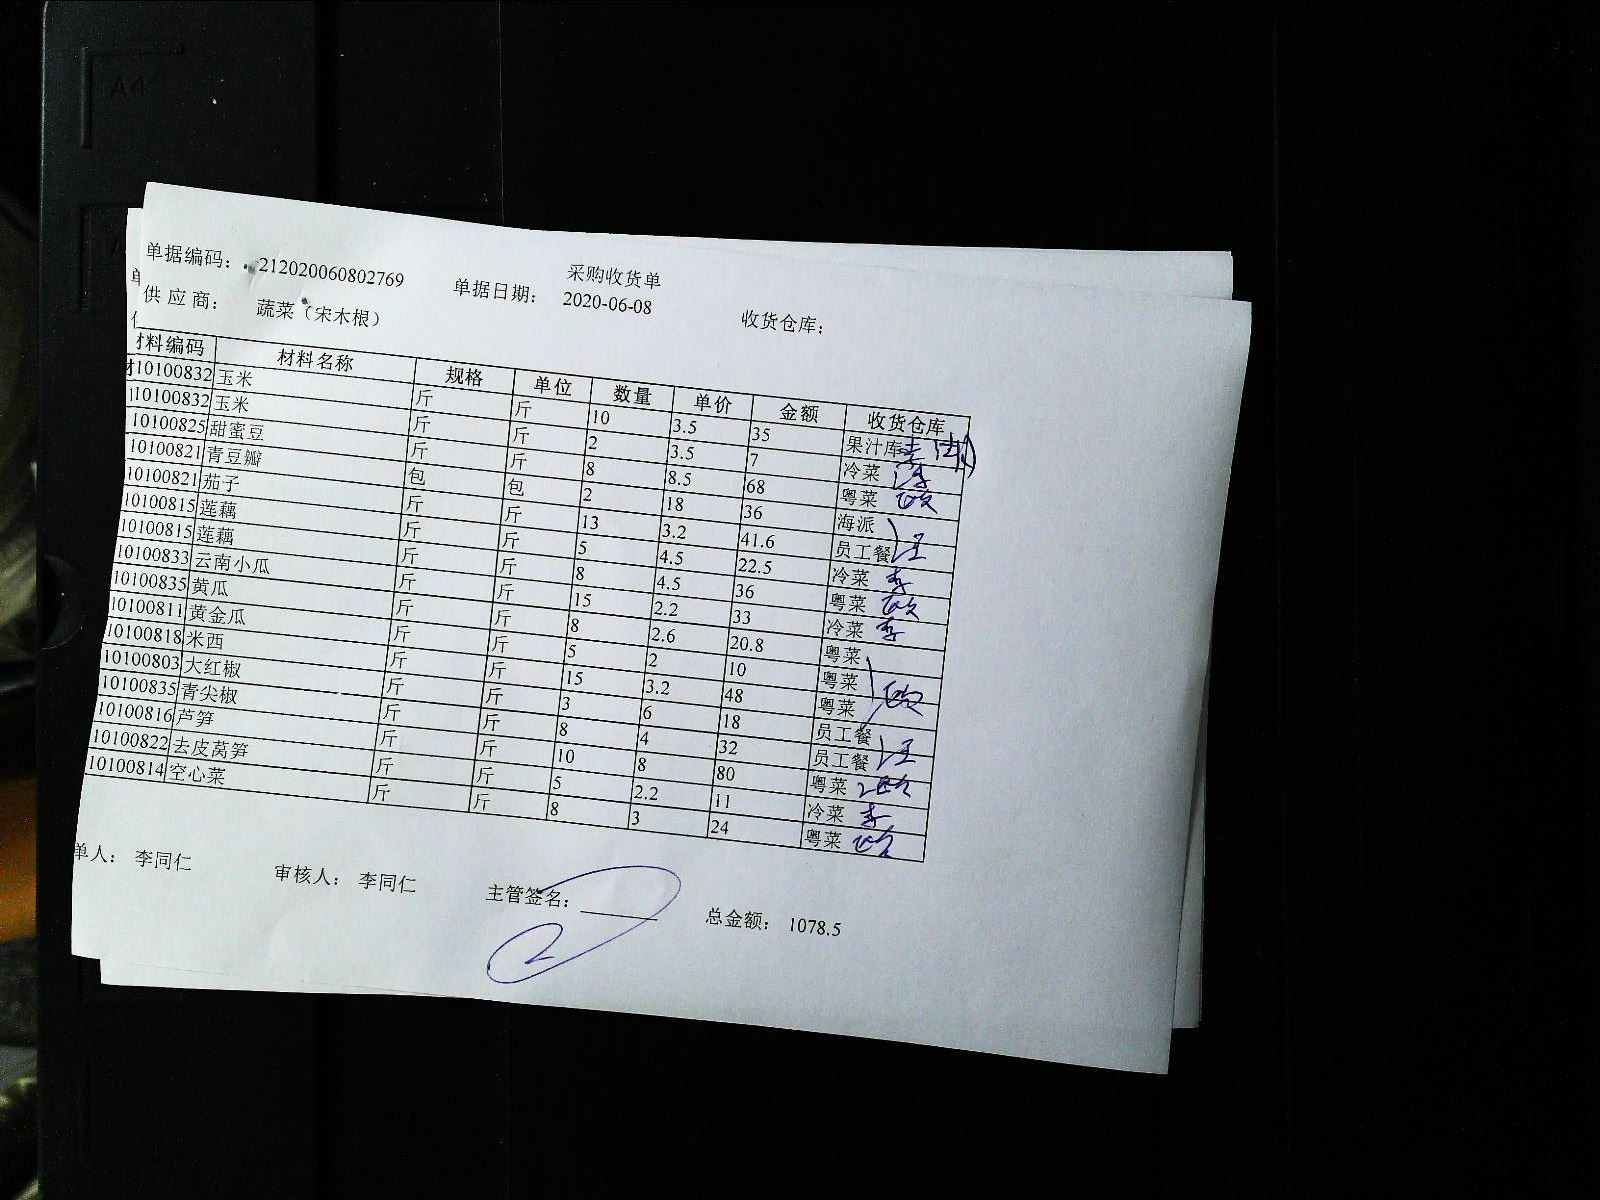 采购收货单
单据编码： 212020060802769 单据日期： 2020-06-08 收货仓库：
供 应 商： 蔬菜（宋木根）
材料编码 材料名称 规格 单位 数量 单价 金额 收货仓库
10100832 玉米 斤 斤 10 3.5 35 果汁库
10100832 玉米 斤 斤 2 3.5 7 冷菜 李
10100825 甜蜜豆 斤 斤 8 8.5 68 粤菜 欧
10100821 青豆瓣 包 包 2 18 36 海派
10100821 茄子 斤 斤 13 3.2 41.6 员工餐 汪
10100815 莲藕 斤 斤 5 4.5 22.5 冷菜 李
10100815 莲藕 斤 斤 8 4.5 36 粤菜 欧
10100833 云南小瓜 斤 斤 15 2.2 33 冷菜 李
10100835 黄瓜 斤 斤 8 2.6 20.8 粤菜
10100811 黄金瓜 斤 斤 5 2 10 粤菜
10100818 米西 斤 斤 15 3.2 48 粤菜 欧
10100803 大红椒 斤 斤 3 6 18 员工餐
10100835 青尖椒 斤 斤 8 4 32 员工餐 汪
10100816 芦笋 斤 斤 10 8 80 粤菜 欧
10100822 去皮莴笋 斤 斤 5 2.2 11 冷菜 李
10100814 空心菜 斤 斤 8 3 24 粤菜 欧
单人： 李同仁 审核人： 李同仁 主管签名： 总金额： 1078.5